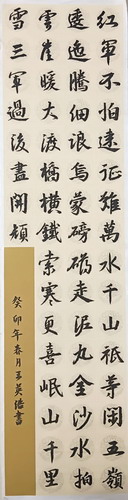 紅軍不怕遠征難萬水千山衹等閑五嶺
逶迤騰細浪烏蒙磅礴走泥丸金沙水拍
雲崖暖大渡橋橫鐵索寒更喜岷山千里
雪三軍過後盡開顏
癸卯年春月王英浩書